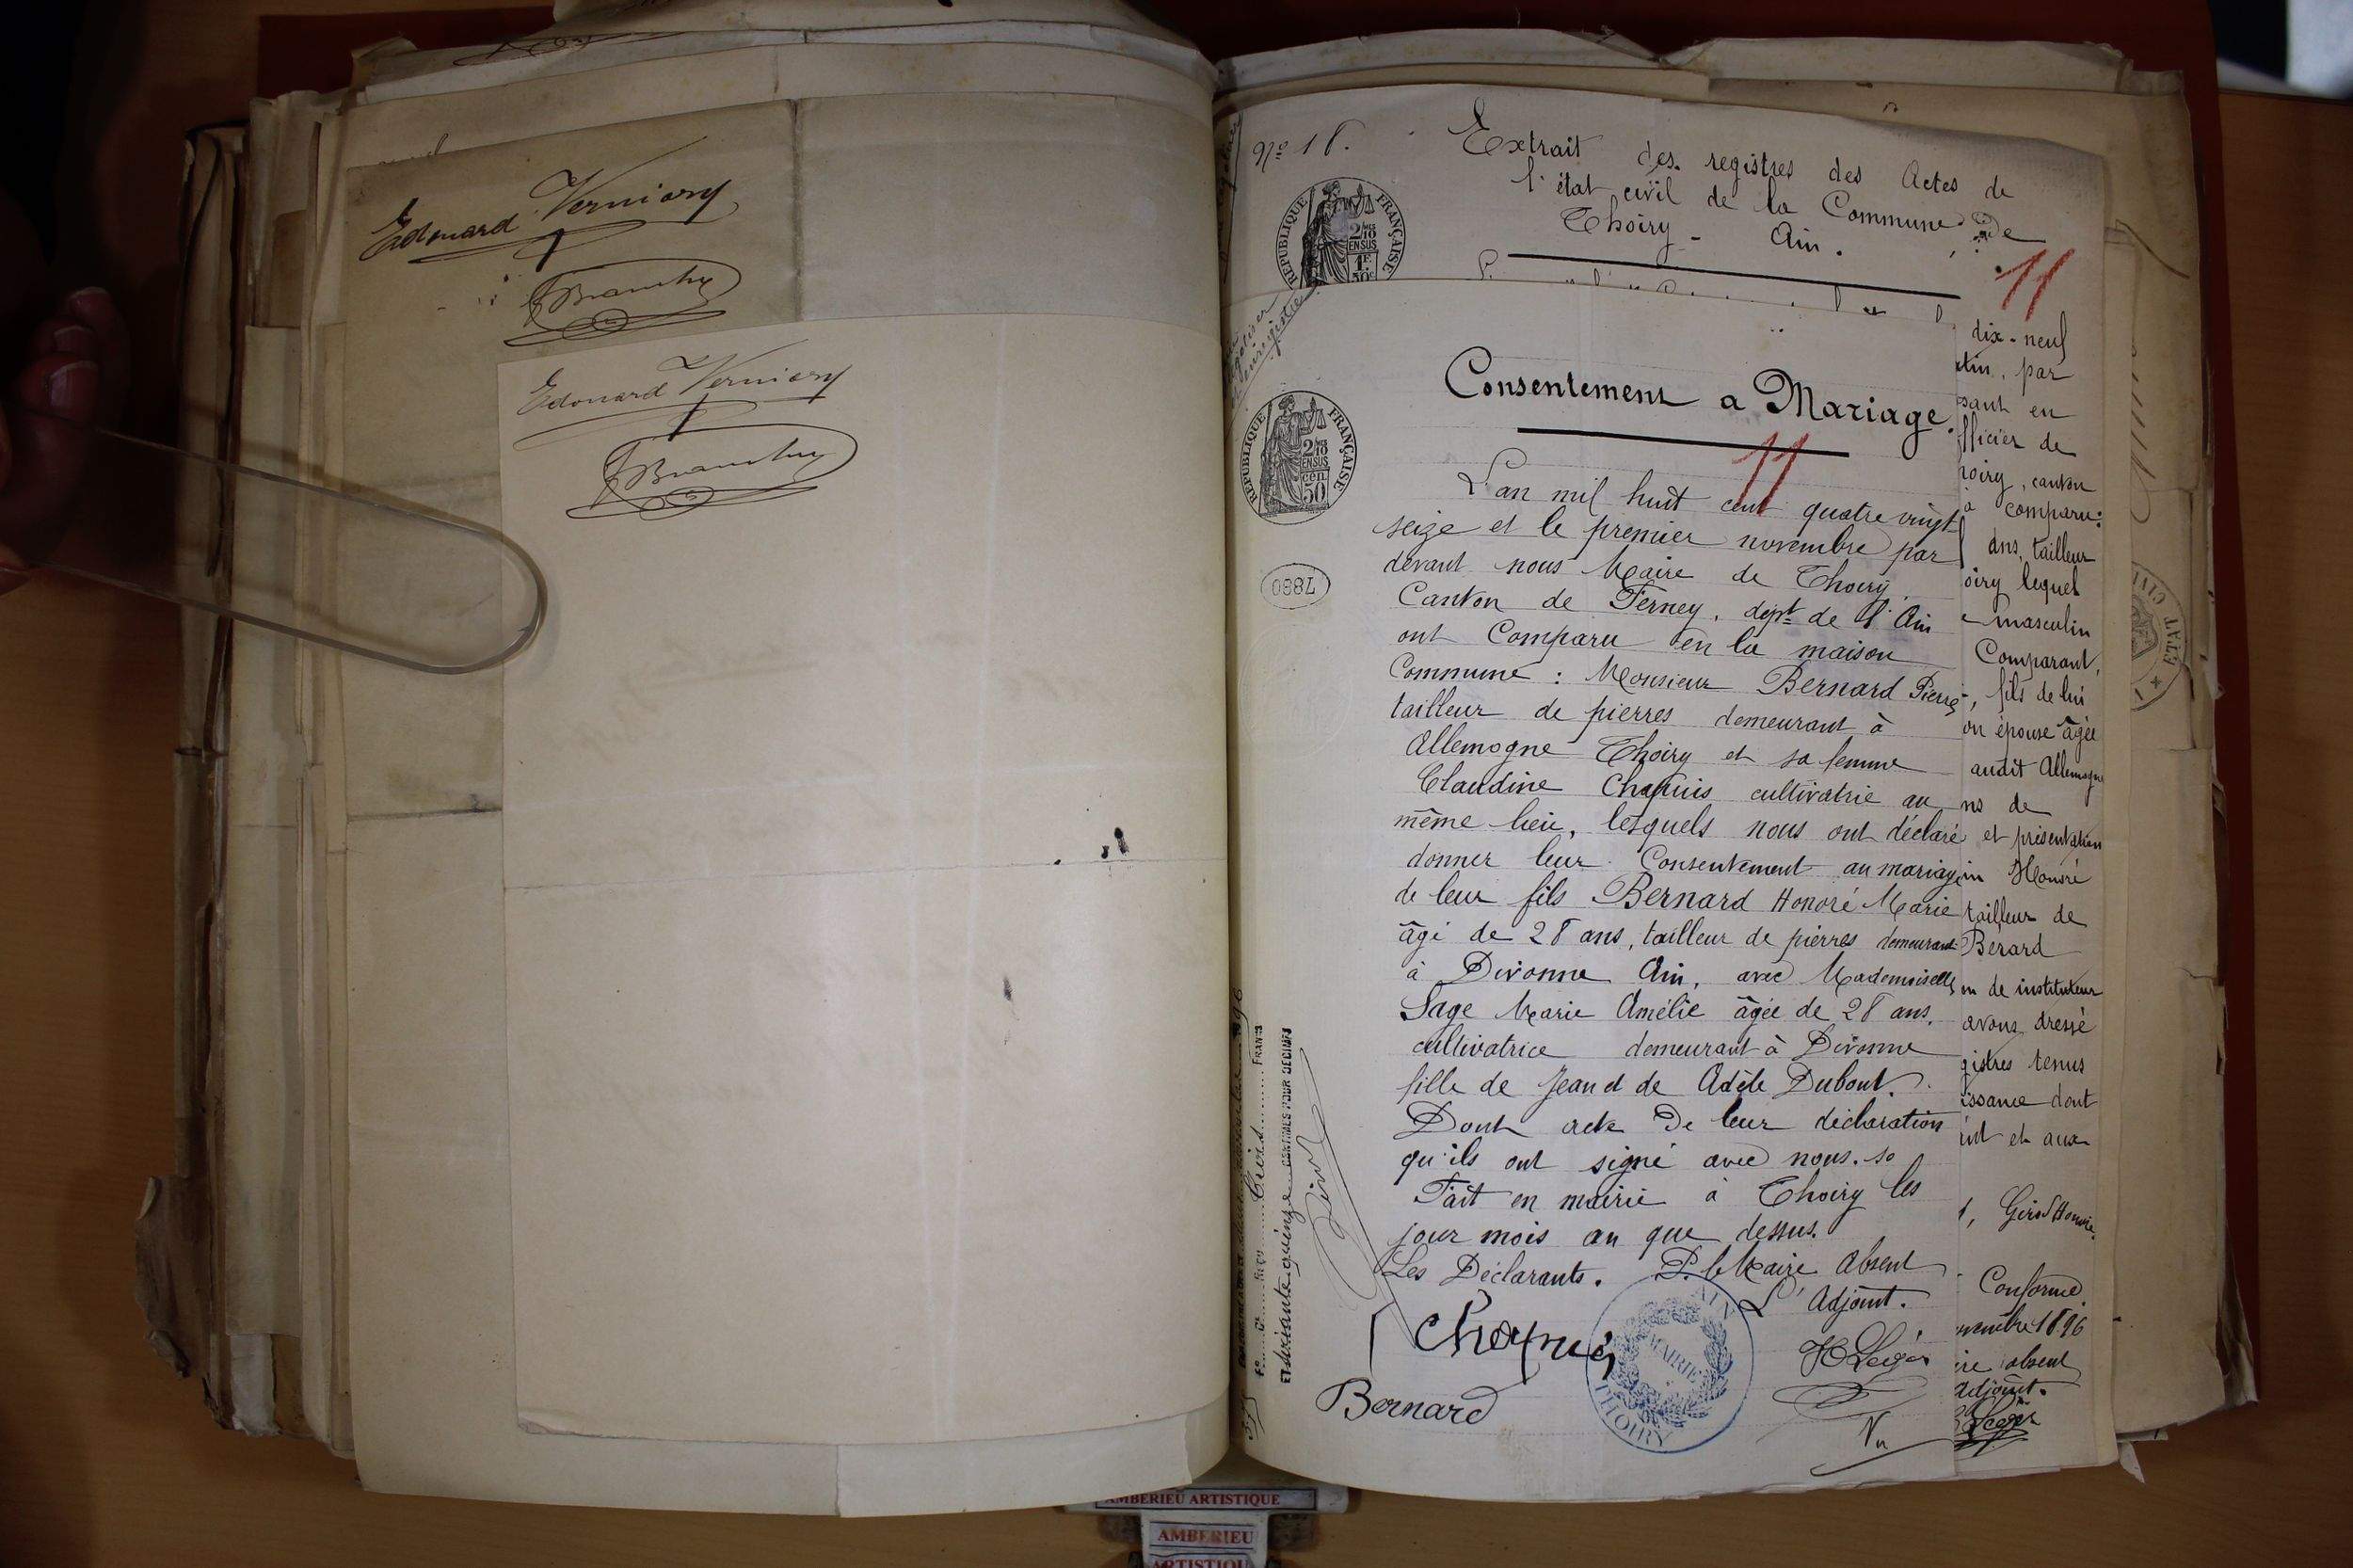 Edouard Verniory
Edouard Verniory
Nº 18.
Extrait des registres des Actes de
l'état civil de la Commune de
Thoiry - Ain.
11
REPUBLIQUE FRANÇAISE
2/10 EN SUS
1F 50c
Consentement a Mariage.
11
REPUBLIQUE FRANÇAISE
2/10 EN SUS
cen 50
7880
L'an mil huit cent quatre vingt
seize et le premier novembre par
devant nous Maire de Thoiry.
Canton de Ferney, dépt de l'Ain
ont Comparu en la maison
Commune : Monsieur Bernard Pierre
tailleur de pierres demeurant à
Allemogne Thoiry et sa femme
Claudine Chapuis cultivatrie au
même lieu, lesquels nous ont déclaré
donner leur Consentement au mariage
de leur fils Bernard Honoré Marie
âgé de 28 ans, tailleur de pierres demeurant
à Divonne Ain, avec Mademoiselle
Sage Marie Amélie âgée de 28 ans.
cultivatrice demeurant à Divonne
fille de Jean et de Adèle Dubout.
Dont acte De leur déclaration
qu'ils ont signé avec nous.
Fait en mairie à Thoiry les
jour mois an que dessus.
Les Déclarants. P. le Maire Absent
L'Adjoint.
Bernard
MAIRIE DE THOIRY
AIN
Vu
dix-neuf
par
sant en
fficier de
hoiry, canton
a comparu:
ans, tailleur
oiry lequel
masculin
Comparant,
fils de lui
on épouse âgée
audit Allemogne
ns de
et présentation
in Honoré
tailleur de
Bérard
de instituteur
avons dressé
gistres tenus
issance dont
et aux
Girod Honoré.
Conforme
vembre 1896
ire absent
Adjoint.
ETAT CIVIL
FRANCS
CENTIMES POUR DECIMES
AMBERIEU ARTISTIQUE
AMBERIEU
ARTISTIQU